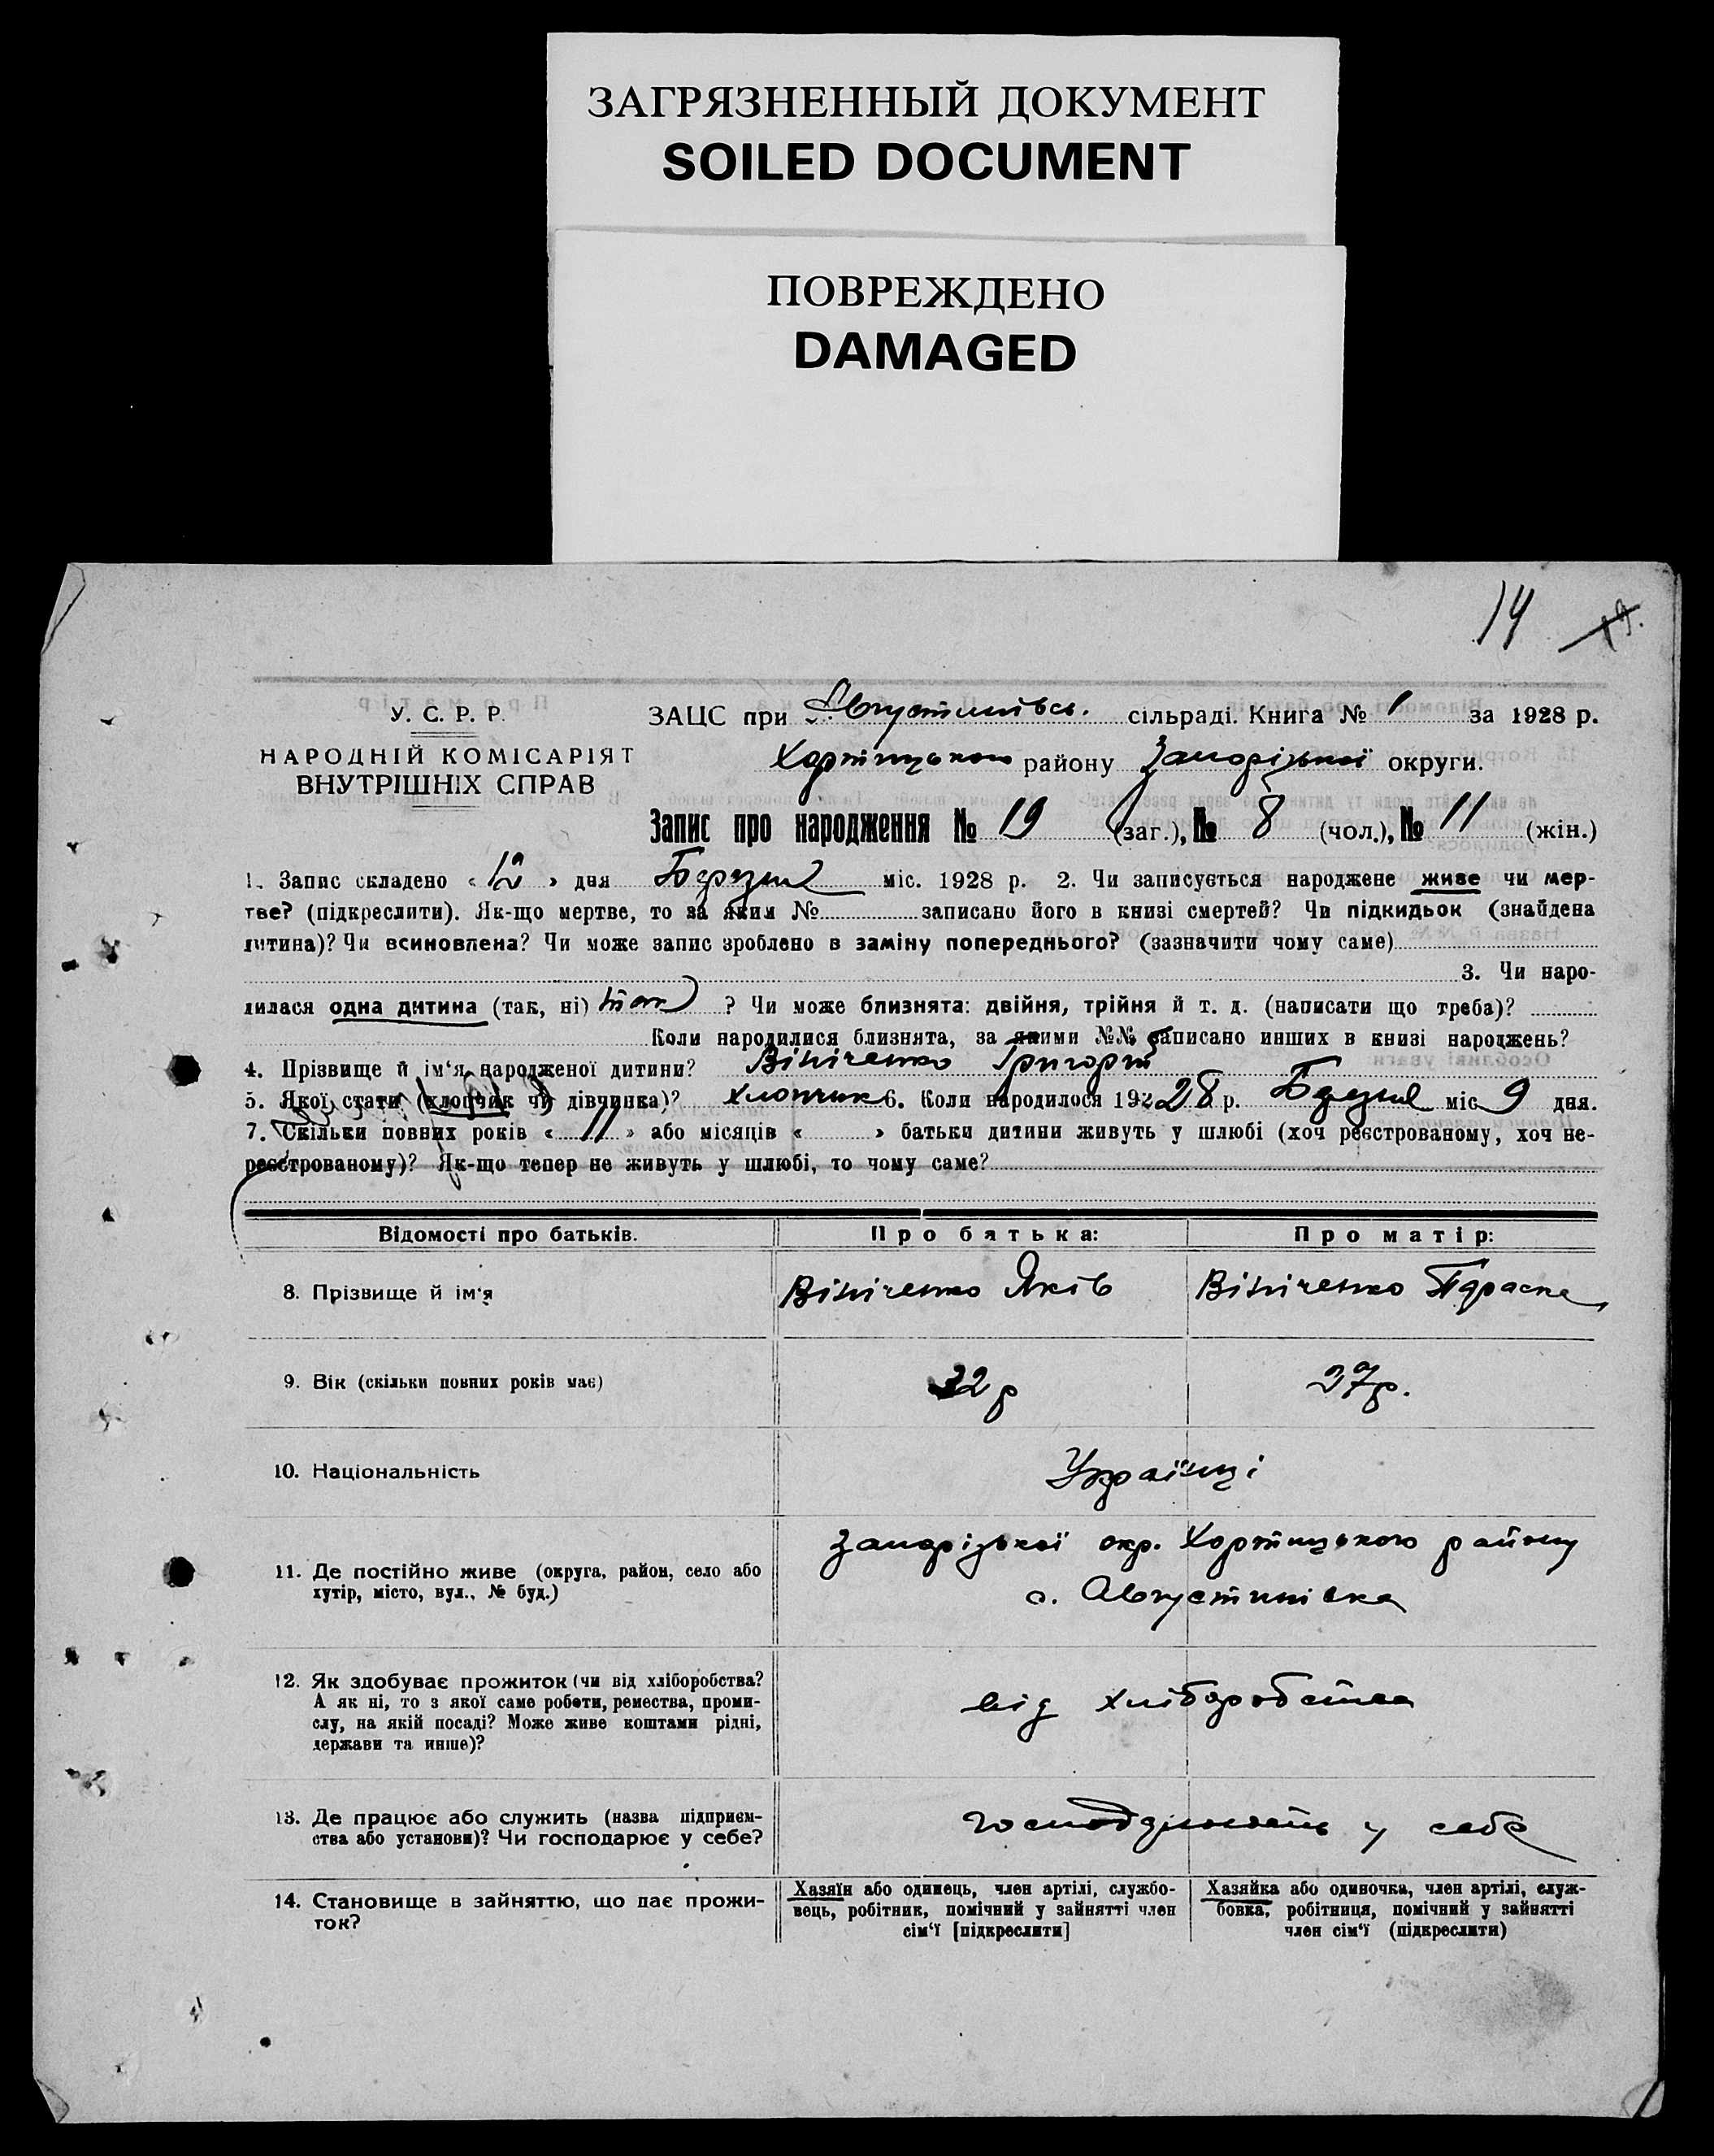 ЗАГРЯЗНЕННЫЙ ДОКУМЕНТ
SOILED DOCUMENT
ПОВРЕЖДЕНО
DAMAGED
14
19.
У. С. Р. Р.
НАРОДНІЙ КОМІСАРІЯТ
ВНУТРІШНІХ СПРАВ
ЗАЦС при Августинівсь. сільраді. Книга № 1 за 1928 р.
Хортицького району Запорізької округи.
Запис про народження № 19 (заг.), № 8 (чол.), № 11 (жін.)
1. Запис складено « 12 » дня Березня міс. 1928 р. 2. Чи записується народжене живе чи мер-
тве? (підкреслити). Як-що мертве, то за яким № записано його в книзі смертей? Чи підкидьок (знайдена
дитина)? Чи всиновлена? Чи може запис зроблено в заміну попереднього? (зазначити чому саме)
3. Чи наро-
дилася одна дитина (так, ні) так ? Чи може близнята: двійня, трійня й т. д. (написати що треба)?
Коли народилися близнята, за якими №№ записано инших в книзі народжень?
4. Прізвище й ім'я народженої дитини? Вініченко Григорій
5. Якої стати (хлопчик чи дівчинка)? хлопчик 6. Коли народилося 1928 р. Березня міс 9 дня.
7. Скільки повних років « 11 » або місяців « » батьки дитини живуть у шлюбі (хоч реєстрованому, хоч не-
реєстрованому)? Як-що тепер не живуть у шлюбі, то чому саме?
Відомості про батьків. Про батька: Про матір:
8. Прізвище й ім'я Вініченко Яків Вініченко Параска
9. Вік (скільки повних років має) 32 р 27 р.
10. Національність Українці
11. Де постійно живе (округа, район, село або
хутір, місто, вул., № буд.)
Запорізької окр. Хортицького району
с. Августинівка
12. Як здобуває прожиток (чи від хліборобства?
А як ні, то з якої саме роботи, ремества, проми-
слу, на якій посаді? Може живе коштами рідні,
держави та инше)?
від хліборобства
13. Де працює або служить (назва підприєм-
ства або установи)? Чи господарює у себе?
у себе
14. Становище в зайняттю, що дає прожи-
ток?
Хазяїн або одинець, член артілі, службо-
вець, робітник, помічний у зайнятті член
сім'ї [підкреслити]
Хазяйка або одиночка, член артілі, служ-
бовка, робітниця, помічний у зайнятті
член сім'ї (підкреслити)